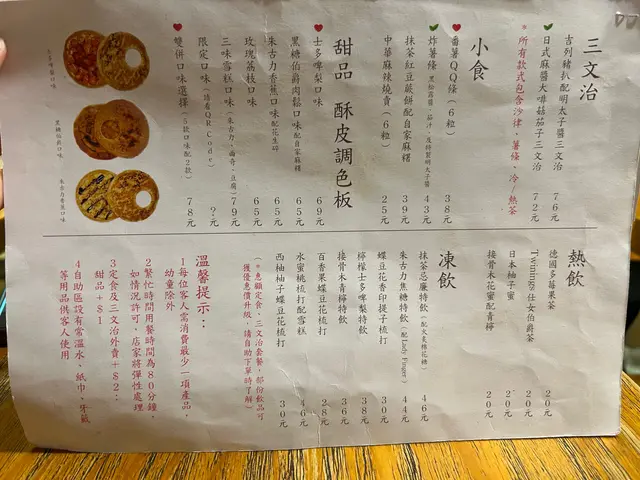 三文治
吉列豬扒配明太子醬三文治 76元
日式麻醬大啡菇茄子三文治 72元
*所有款式包含沙律、薯條、冷/熱茶
小食
番薯QQ條(6粒) 38元
炸薯條 43元
抹茶紅豆蕨餅配自家麻糬 39元
中華麻辣燒賣(6粒) 25元
甜品 酥皮調色板
士多啤梨口味 69元
黑糖伯爵肉鬆口味 配自家麻糬 65元
朱古力香蕉口味 配花生碎 65元
玫瑰荔枝口味 65元
三味雪糕口味(朱古力、曲奇、豆腐) 79元
限定口味(請看QR Code) ?元
雙併口味選擇(5款口味配2款) 78元
士多啤梨口味
黑糖伯爵口味
朱古力香蕉口味
熱飲
德國多莓果茶 20元
Twinings 仕女伯爵茶 20元
日本柚子蜜 20元
接骨木花蜜配青檸 20元
凍飲
抹茶忌廉特飲 46元
朱古力焦糖特飲(配Lady Finger) 44元
蝶豆花香印提子梳打 30元
檸檬士多啤梨特飲 38元
接骨木青檸特飲 36元
百香果蝶豆花梳打 28元
水蜜桃梳打配雪糕 46元
西柚柚子蝶豆花梳打 30元
(*惠顧定食、三文治套餐,部份飲品可
獲優惠價升級,請自助下單時了解)
溫馨提示:
1每位客人需消費最少一項產品,
幼童除外
2繁忙時間用餐時間為80分鐘,
如情況許可,店家將彈性處理
3定食及三文治外賣+$2;
甜品+$1
4自助區設有常溫水、紙巾、牙籤
等用品供客人使用